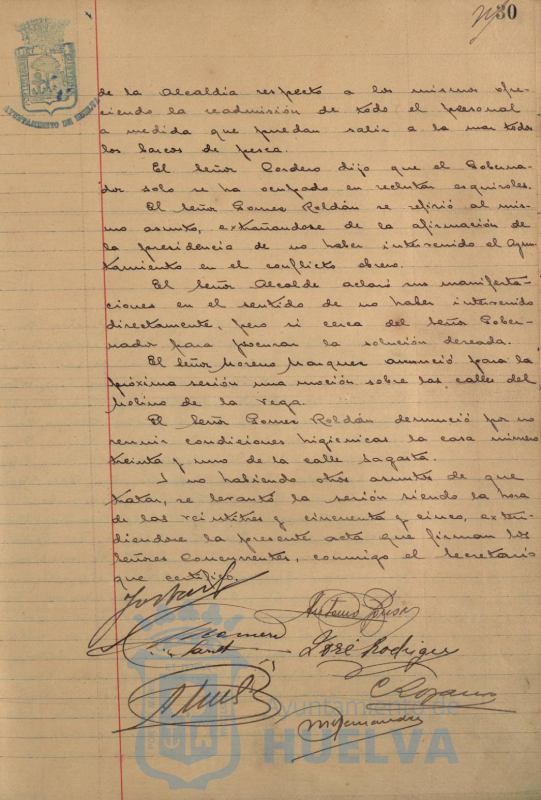 30
AYUNTAMIENTO DE HUELVA
de la Alcaldía respecto a los mismos ofre-
ciendo la readmisión de todo el personal
a medida que puedan salir a la mar todos
los barcos de pesca.
El Señor Cordero dijo que el Goberna-
dor solo se ha ocupado en reclutar esquiroles.
El Señor Gomez Roldán se refirió al mis-
mo asunto, extrañandose de la afirmación de
la presidencia de no haber intervenido el Ayun-
tamiento en el conflicto obrero.
El Señor Alcalde aclaró sus manifesta-
ciones en el sentido de no haber intervenido
directamente, pero si cerca del Señor Gober-
nador para procurar la solución deseada.
El Señor Moreno Marquez anunció para la
próxima sesión una moción sobre las calles del
Molino de la Vega.
El Señor Gomez Roldán denunció por no
reunir condiciones higienicas la casa número
treinta y uno de la calle Sagasta.
Y no habiendo otros asuntos de que
tratar, se levantó la sesión siendo la hora
de las veintitres y cincuenta y cinco, exten-
diendose la presente acta que firman los
Señores Concurrentes, conmigo el Secretario
que certifico.
José Rodriguez
Ayuntamiento de
HUELVA